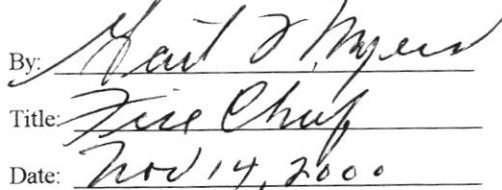 By: Gail L. Myers
Title: Fire Chief
Date: Nov 14, 2000